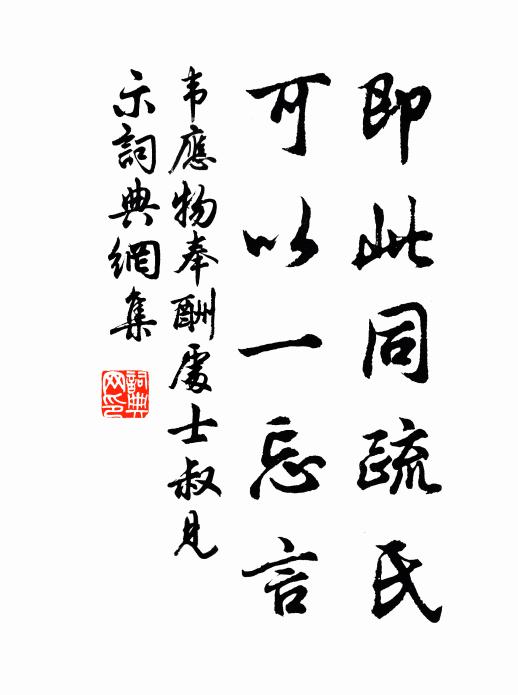 即此同疏氏
可以一忘言
韦應物奉酬處士叔見
示詞典網集
詞典
网印